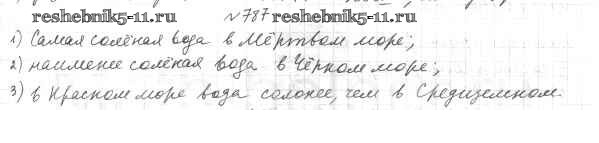 reshebnik5-11.ru №787 reshebnik5-11.ru
1) Самая солёная вода в Мёртвом море;
2) наименее солёная вода в Чёрном море;
3) в Красном море вода солонее, чем в Средиземном.